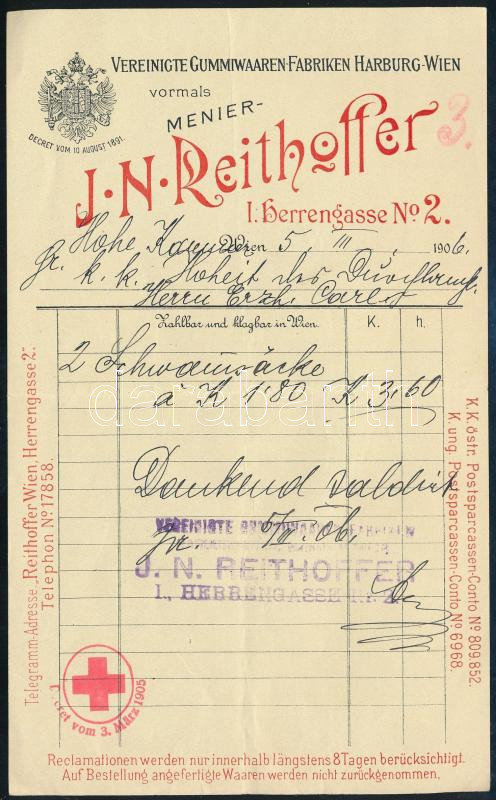 VEREINIGTE GUMMIWAAREN-FABRIKEN HARBURG-WIEN
vormals
MENIER-
J. N. Reithoffer
3.
DECRET VOM 10 AUGUST 1891.
I. Herrengasse No 2.
Hohe Wien 5. III. 1906.
k. k. Hoheit des
Herrn Erzh. Carl
Zahlbar und klagbar in Wien. K. h.
2 Schwammsäcke
à K 1·80 K 3,60
darabanth
Dankend saldirt
VEREINIGTE GUMMIWAAREN-FABRIKEN
5/III. 06.
J. N. REITHOFFER
I., HERRENGASSE Nr. 2.
Telegramm-Adresse „Reithoffer Wien, Herrengasse 2."
Telephon No 17858.
K. K. östr. Postsparcassen-Conto No 809.852.
K. ung. Postsparcassen-Conto No 6968.
Decret vom 3. März 1905
Reclamationen werden nur innerhalb längstens 8 Tagen berücksichtigt.
Auf Bestellung angefertigte Waaren werden nicht zurückgenommen.